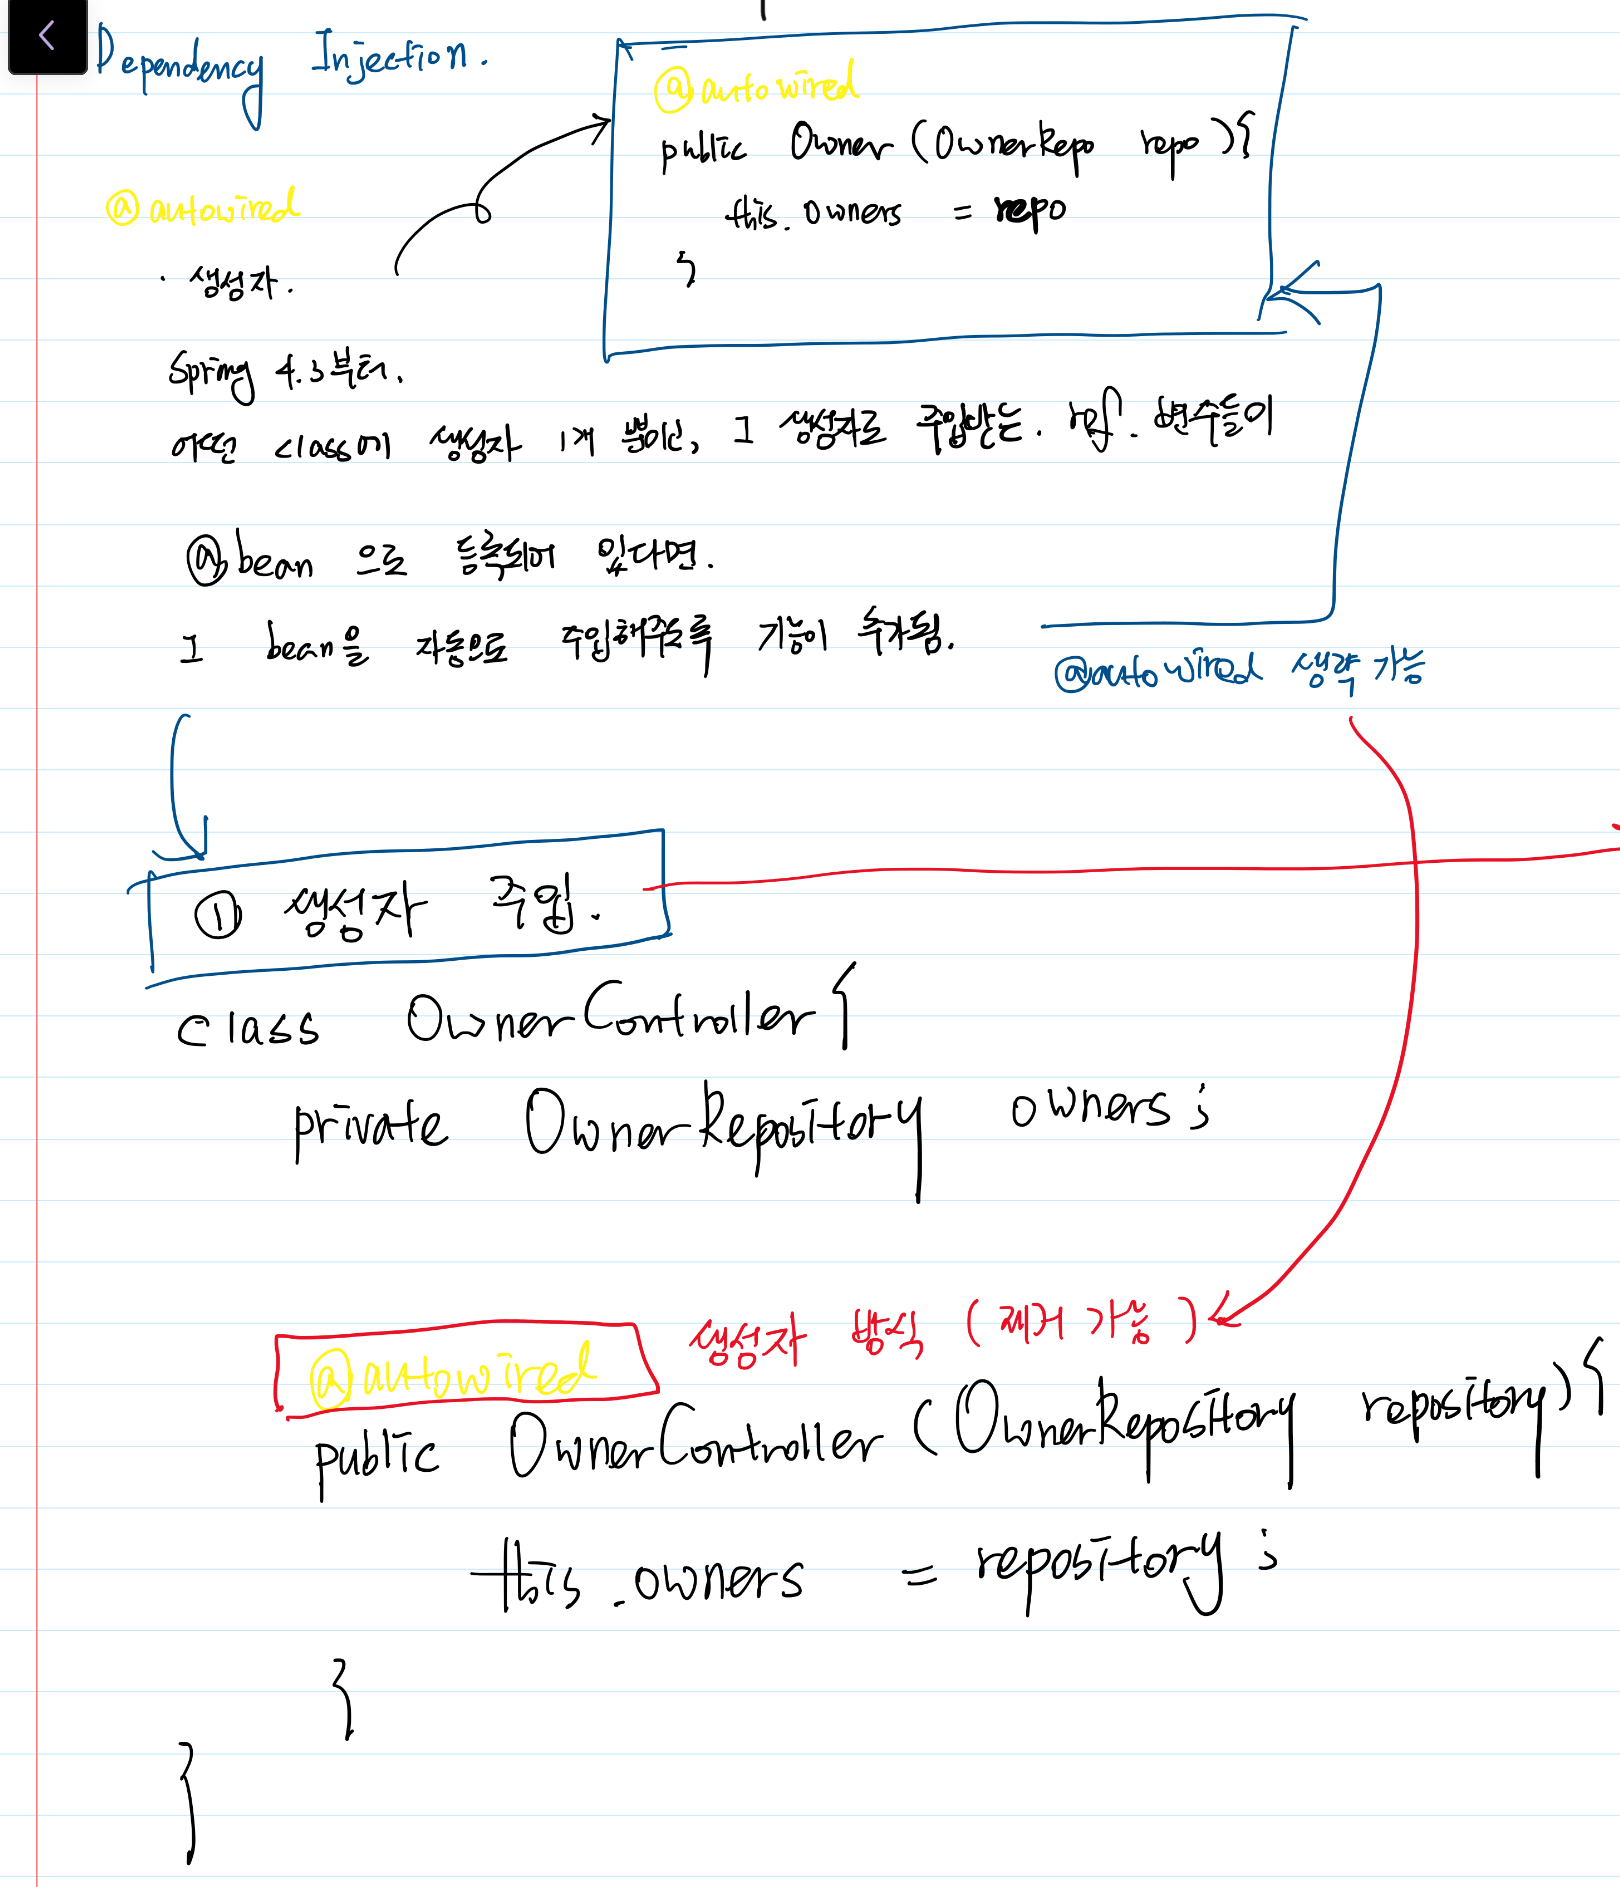 Dependency Injection.
@autowired
public Owner (OwnerRepo repo){
this.owners = repo
}
@autowired
· 생성자.
Spring 4.3부터.
어떤 class에 생성자 1개 뿐이고, 그 생성자로 주입받는. ref. 변수들이
@bean 으로 등록되어 있다면.
그 bean을 자동으로 주입해주도록 기능이 추가됨.
@autowired 생략 가능
① 생성자 주입.
class OwnerController{
private OwnerRepository owners;
@autowired 생성자 방식 (제거 가능)
public OwnerController (OwnerRepository repository){
this.owners = repository;
}
}